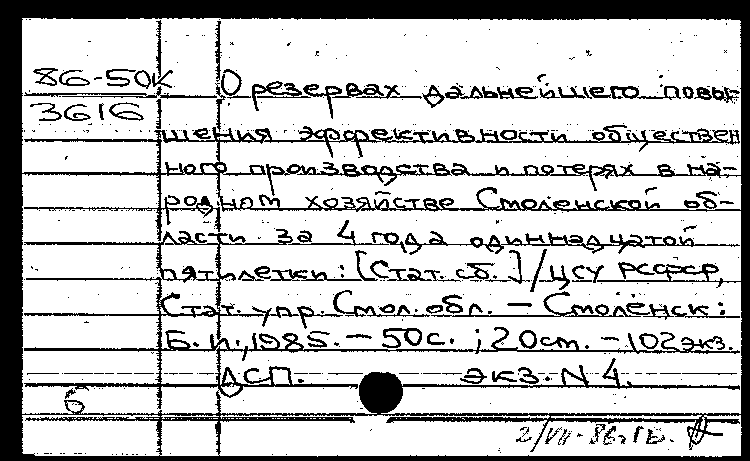 86-50К
3616
О резервах дальнейшего повы-
шения эффективности обществен
ного производства и потерях в на-
родном хозяйстве Смоленской об-
ласти за 4 года одиннадцатой
пятилетки: [Стат. сб.] / ЦСУ РСФСР,
Стат. упр. Смол. обл. – Смоленск:
Б. и., 1985. – 50с. ; 20см. – 102экз.
ДСП. экз. N 4.
6
2/VII-86г.